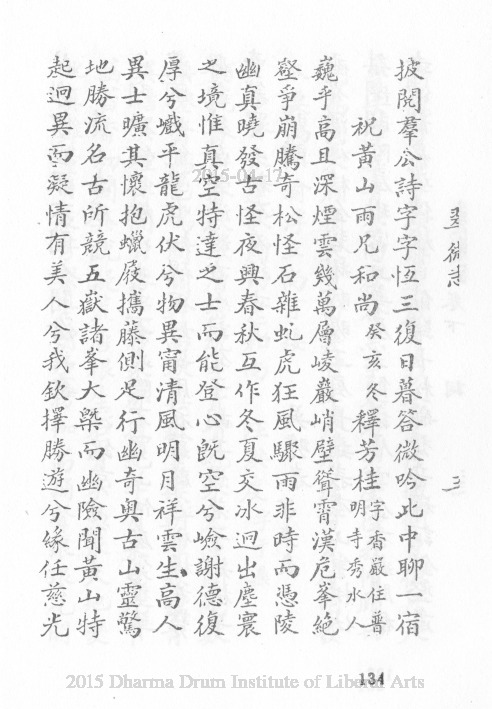 披閱羣公詩字字恆三復日暮答微吟此中聊一宿
祝黃山雨兄和尚癸亥冬釋芳桂字香嚴住普明寺秀水人
巍乎高且深煙雲幾萬層崚巖峭壁聳霄漢危峯絕
壑爭崩騰奇松怪石雜虬虎狂風驟雨非時而憑陵
幽真曉發古怪夜興春秋互作冬夏交冰迥出塵寰
之境惟真空特達之士而能登心旣空兮嶮謝德復
厚兮巇平龍虎伏兮物異甯清風明月祥雲生高人
異士曠其懷抱蠟屐攜藤側足行幽奇奧古山靈驚
地勝流名古所競五嶽諸峯大槩而幽險聞黃山特
起迥異而凝情有美人兮我欽擇勝遊兮緣任慈光
三
134
2015-04-17
2015 Dharma Drum Institute of Liberal Arts